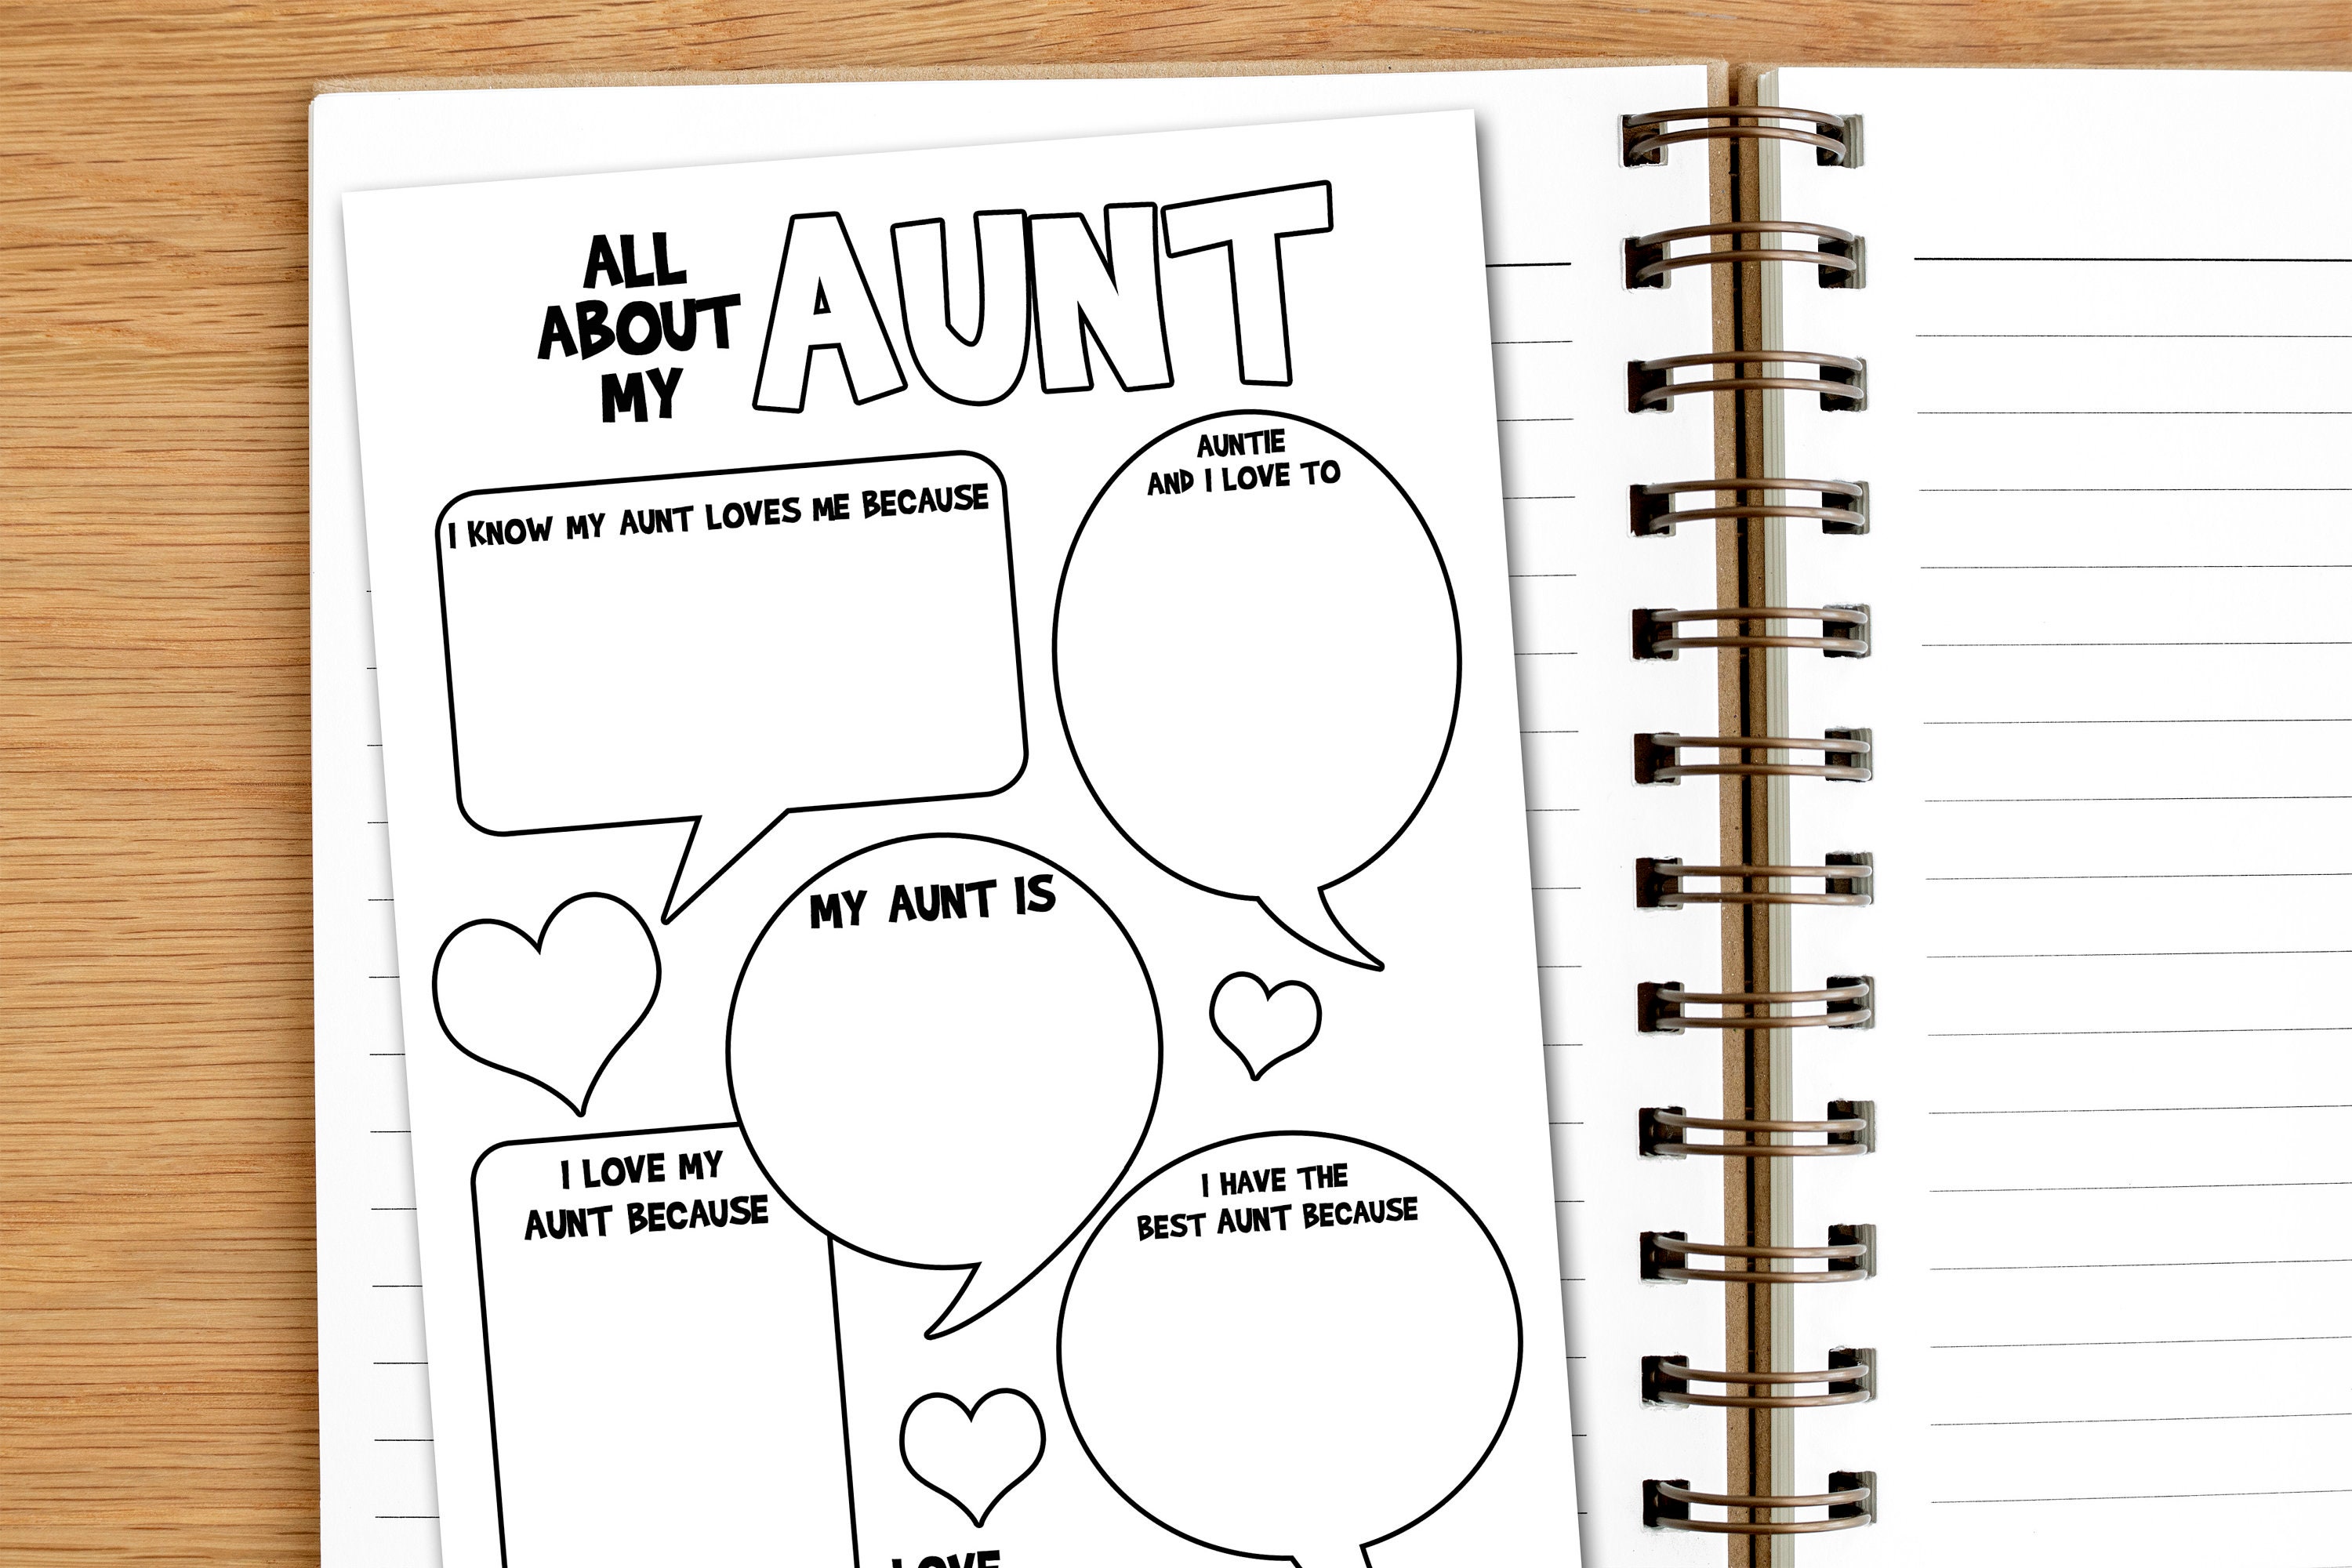 ALL
ABOUT
MY
AUNT
I KNOW MY AUNT LOVES ME BECAUSE
AUNTIE
AND I LOVE TO
MY AUNT IS
I LOVE MY
AUNT BECAUSE
I HAVE THE
BEST AUNT BECAUSE
LOVE